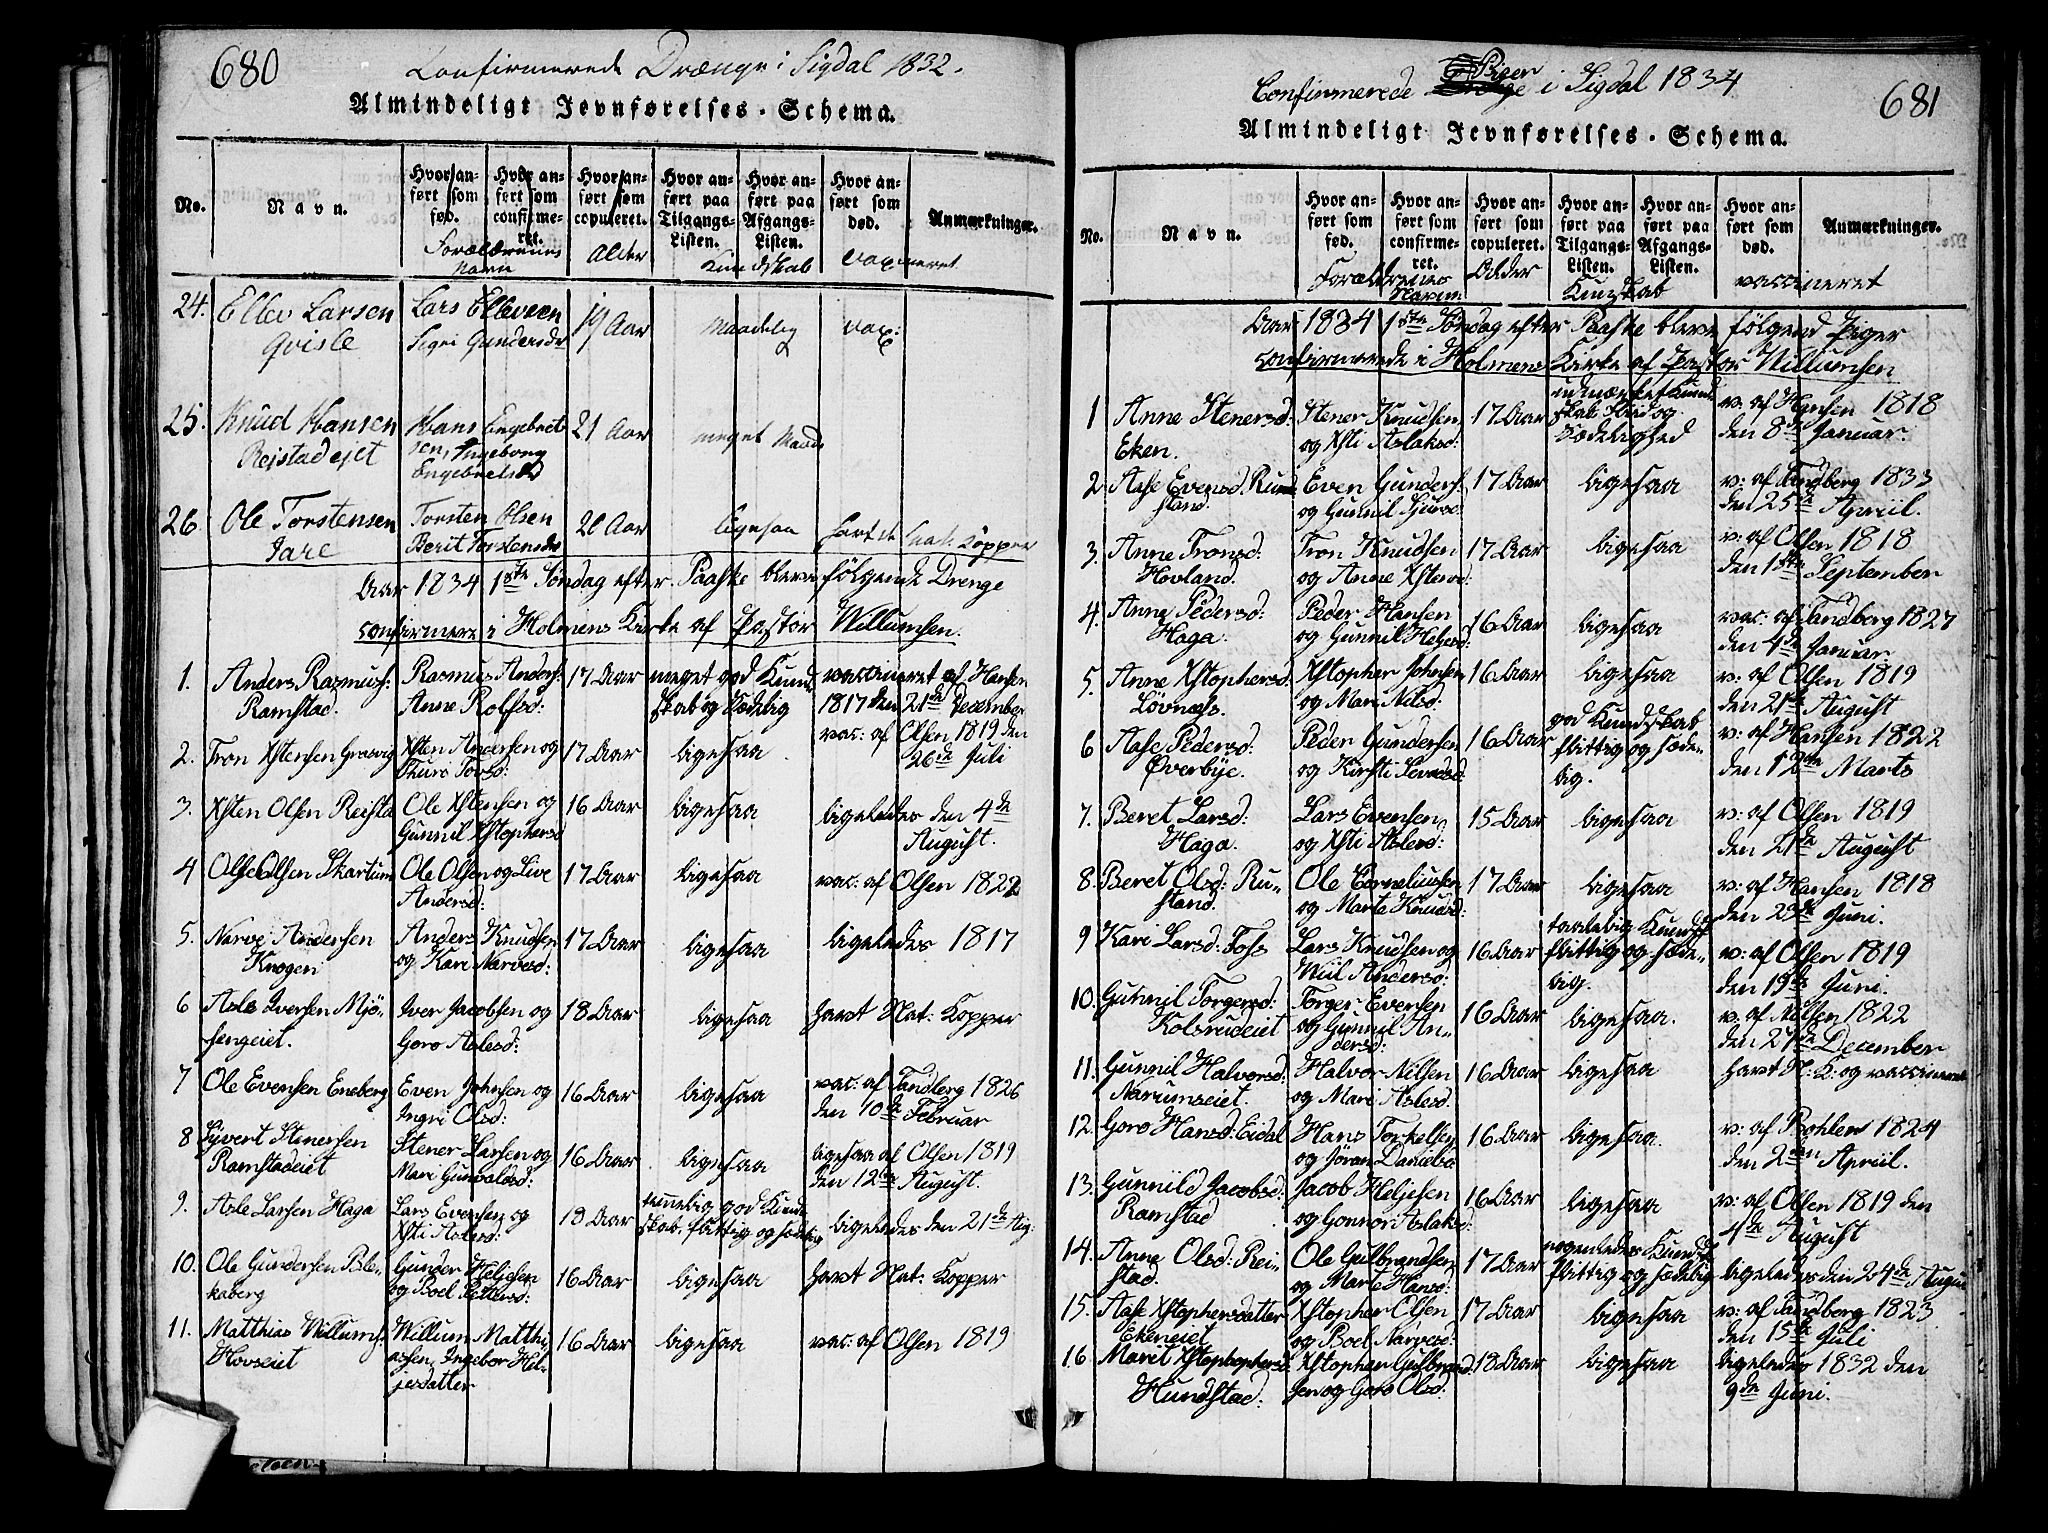 680
Confirmerede Drænge i Sigdal 1832.
Almindeligt Jevnførelses-Schema.
No.
Navn.
Hvor anført som fød.
Hvor anført som confirmeret.
Hvor anført som copuleret.
Hvor anført paa Tilgangs-Listen.
Hvor anført paa Afgangs-Listen.
Hvor anført som død.
Anmærkninger.
Forældrenes Navn
Alder
Kundskab
vaxineret
24. Ellev Larsen Lars Elleveen 19 Aar Maadelig vax:
Qvisle Sigri Gundersdr
25. Knud Hansen Hans Engebret 21 Aar meget Maade
Rejstadejet sen, Ingeborg
Engebretsd
26. Ole Torstensen Torsten Olsen 20 Aar ligesaa havt de nat. Kopper
Jare Berit Torstensdr
Aar 1834 1ste Søndag efter Paaske bleve følgende Drenge
confirmere i Holmens Kirke af Pastor Willumsen.
1. Anders Rasmus: Rasmus Anders: 17 Aar meget god Kund vaccineret af Hansen
Ramstad. Anne Rolfsd: skab og Sædelig 1817 den 21de December
2. Tron Xstensen Grasvig Xsten Andersen og 17 Aar ligesaa vac: af Olsen 1819 den
Thuri Torsd: 26de Juli
3. Xsten Olsen Reista Ole Xstensen og 16 Aar ligesaa ligeledes den 4de
Gunnil Xstophersd August.
4 Olse Olsen Skartum Ole Olsen og Live 17 Aar ligesaa vac: af Olsen 1822
Andersd:
5. Narve Andersen Anders Knudsen 17 Aar ligesaa ligeledes 1817
Knogen og Kari Narvesd:
6 Asle Iversen Mjø- Iver Jacobsen og 18 Aar ligesaa havt Nat: Kopper
sengeiet. Goro Aslesd:
7 Ole Evensen Eneberg Even Johnsen og 16 Aar ligesaa vac: af Tandberg 1826
Ingri Olsd: den 10de Februar
8 Syvert Stenersen Stener Larsen og 16 Aar ligesaa ligesaa af Olsen 1819
Ramstadeiet Mari Gunvaldsd: den 12te August.
9. Asle Larsen Haga Lars Evensen og 18 Aar temmelig god Kund ligeledes den 21de Aug:
Xsti Aslesd: skab, flittig og sædelig
10. Ole Gundersen Ble- Gunder Heljesen 16 Aar ligesaa havt Nat: Kopper
kaberg og Boel Pettersd:
11. Matthias Willums: Willum Matthi 16 Aar ligesaa vac: af Olsen 1819
Hovseiet assen, Ingebor Hel-
jesdatter
681
Confirmerede Piger i Sigdal 1834
Almindeligt Jevnførelses-Schema.
No.
Navn.
Hvor anført som fød.
Hvor anført som confirmeret.
Hvor anført som copuleret.
Hvor anført paa Tilgangs-Listen.
Hvor anført paa Afgangs-Listen.
Hvor anført som død.
Anmærkninger.
Forældrenes Navn:
Alder
Kundskab
vaccineret
Aar 1834 1ste Søndag efter Paaske bleve følgend Piger
confirmerede i Holmens Kirke af Pastor Willumsen
1 Anne Stenersd: Stener Knudsen 17 Aar udmærket Kund v: af Hansen 1818
Eken. og Xsti Aslaksd: skab flid og Sædelighed den 8de Januar.
2 Aase Evensd. Rund Even Gunders: 17 Aar ligesaa v: af Tandberg 1833
stand. og Gunnil Sjursd: den 25de Apriil.
3. Anne Tronsd: Tron Knudsen 17 Aar ligesaa v: af Olsen 1818
Hovland. og Anne Xstensd: den 1ste September
4. Anne Pedersd: Peder Hansen 16 Aar ligesaa vac: af Tandberg 1827
Haga. og Gunnil Heljesd: den 4de Januar
5. Anne Xstophersd. Xstopher Johnsen 16 Aar ligesaa v: af Olsen 1819
Løvnæss. og Mari Nilsd: den 21de August
6 Aase Pedersd: Peder Gundersen 16 Aar god Kundskab v: af Hansen 1822
Øverbye. og Kirsti flittig og sæde- den 12te Marts
lig.
7. Beret Larsd: Lars Evensen 15 Aar ligesaa v: af Olsen 1819
Haga. og Xsti Aslesd: den 21de August
8. Beret Olsd: Ru- Ole Corneliusen 17 Aar ligesaa v: af Hansen 1818
stand. og Marta Knudsd: den 23de Juni.
9 Kari Larsd: Foss Lars Knudsen og 16 Aar taalelig Kundsk v: af Olsen 1819
Wiil Andersd: flittig og sæde- den 19de Juni.
lig.
10. Gunnil Torgersd: Torger Evensen 16 Aar ligesaa. v: af Nilsen 1822
Kolsrudeiet og Gunnil An- den 21de December
dersd:
11. Gunnil Halvorsd: Halvor Nilsen 16 Aar ligesaa havt N: K: og vaccineret
Narumseiet. og Mari Aslesd.
12. Goro Hansd: Eidal Hans Torkelsen 16 Aar ligesaa. v: af Bohlen 1824
og Jøran Danielsd den 2den Apriil.
13. Gunnild Jacobsd: Jacob Heljesen 16 Aar ligesaa v: af Olsen 1819 den
Ramstad og Gonnor Aslaksd: 4de August
14. Anne Olsd: Rei- Ole Gulbrandsen 17 Aar nogenledes Kundsk ligeledes den 24de August
stad. og Marte Hansd: flittig og sædelig
15. Aase Xstophersdatter Xstopher Olsen 17 Aar ligesaa v: af Tandberg 1823
Ekeneiet og Boel Narvesd: den 15de Juli
16. Marit Xstophersd. Xstopher Gulbrand- 18 Aar ligesaa ligeledes 1832 den
Hundstad: sen og Goro Olsd: 9de Juni.